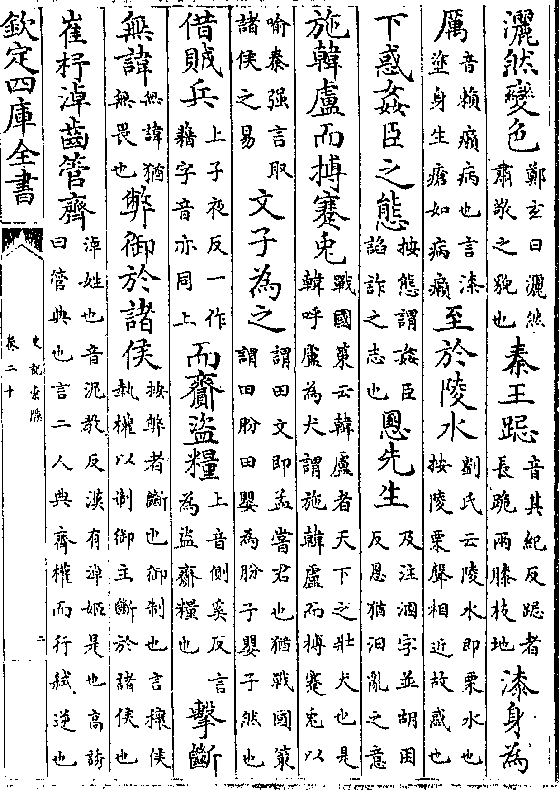 灑然變色鄭𤣥曰灑然肅敬之貌也秦王跽音其紀反跽者長跪兩膝枝地漆身為
厲音賴癩病也言漆塗身生瘡如病癩至於陵水劉氏云陵水即栗水也按陵栗聲相近故惑也
下惑姦臣之態按態謂姦臣諂詐之志也慁先生及注溷字並胡困反慁猶汩亂之意
施韓盧而搏蹇兎戰國策云韓盧者天下之壯犬也是韓呼盧為犬謂施韓盧而搏蹇兎以
喻秦强言取諸侯之易文子為之謂田文即孟嘗君也猶戰國策謂田盼田嬰為盼子嬰子然也
借賊兵上子夜反一作藉字音亦同上而齎盜糧上音側奚反言為盜齎糧也擊斷
無諱無諱猶無畏也弊御於諸侯按弊者斷也御制也言穰侯執權以制御主斷於諸侯也
崔杼淖齒管齊淖姓也音泥教反漢有淖姬是也高誘曰管典也言二人典齊權而行弑逆也
欽定四庫全書
史記索隱
卷二十
二